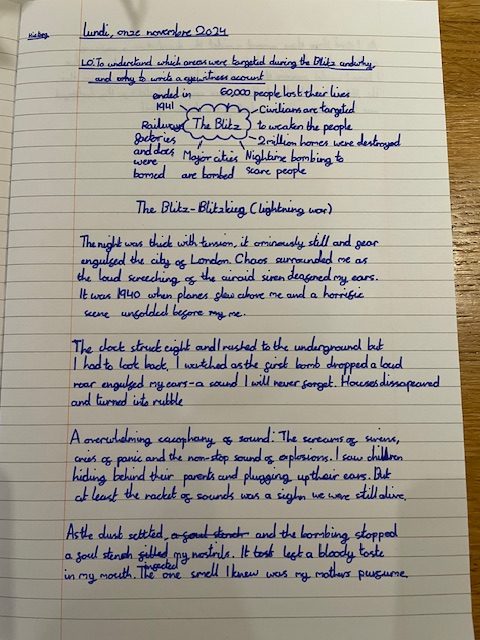 History
lundi, onze novembre 2024
LO: To understand which areas were targeted during the Blitz and why,
and why to write a eyewitness account
ended in 1941
60,000 people lost their lives
Civilians are targeted
to weaken the people
The Blitz
2 million homes were destroyed
Railways
factories
and docs
were
bomed
Major cities
are bombed
Nightime bombing to
scare people
The Blitz-Blitzkieg (lightning war)
The night was thick with tension, it ominously still and fear
engulfed the city of London. Chaos surrounded me as
the loud screeching of the airaid siren deafoned my ears.
It was 1940 when planes flew above me and a horrific
scene unfolded before my me.
The clock struck eight and I rushed to the underground but
I had to look back, I watched as the first bomb dropped a loud
roar engulfed my ears-a sound I will never forget. Houses dissapeared
and turned into rubble
A overwhelming cacophany of sound: The screams of sirens,
cries of panic and the non-stop sound of explosions. I saw children
hiding behind their parents and plugging up their ears. But
at least the racket of sounds was a sighn we were still alive.
As the dust settled, a foul stench and the bombing stopped
a foul stench filled infected my nostrils. It tost left a bloody taste
in my mouth. The one smell I knew was my mothers purfume.